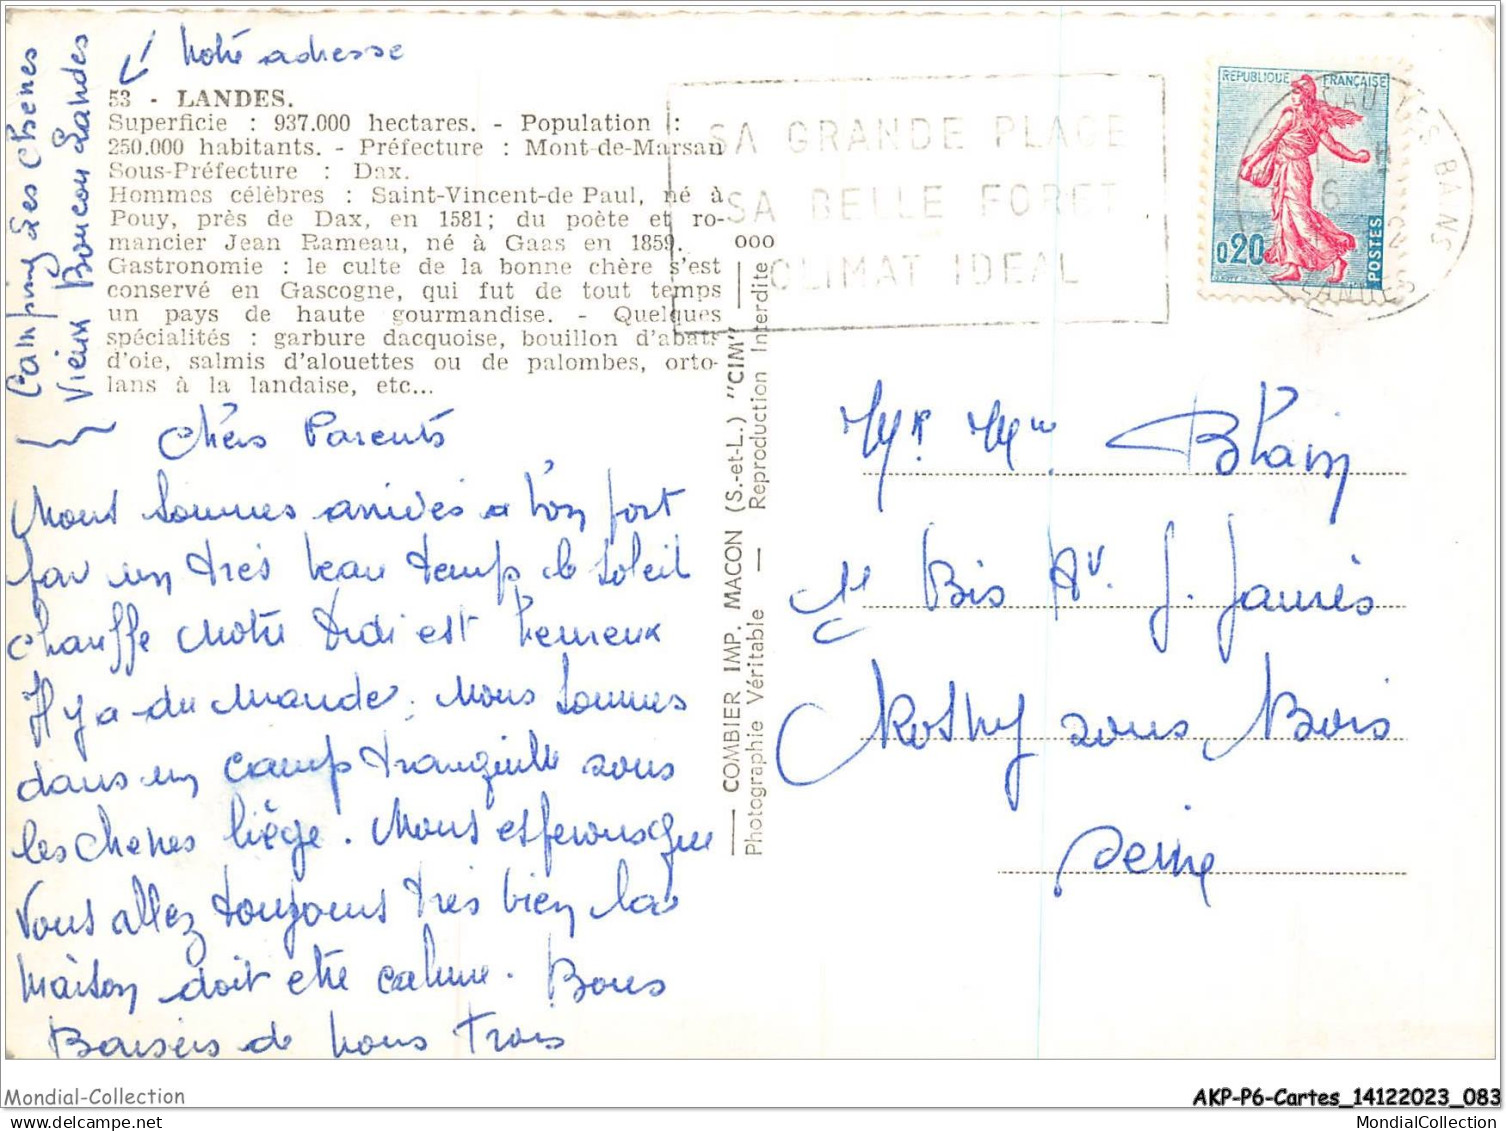 Notre adresse
Camping des Chenes
Vieux Boucau Landes
53 - LANDES.
Superficie : 937.000 hectares. - Population :
250.000 habitants. - Préfecture : Mont-de-Marsan
Sous-Préfecture : Dax.
Hommes célèbres : Saint-Vincent-de Paul, né à
Pouy, près de Dax, en 1581; du poète et ro-
mancier Jean Rameau, né à Gaas en 1859.
Gastronomie : le culte de la bonne chère s'est
conservé en Gascogne, qui fut de tout temps
un pays de haute gourmandise. - Quelques
spécialités : garbure dacquoise, bouillon d'abats
d'oie, salmis d'alouettes ou de palombes, orto-
lans à la landaise, etc...
Chers Parents
Nous sommes arrivés a bon port
par un très beau temps le soleil
chauffe Notre Didi est heureux
Il y a du monde, nous sommes
dans un camp tranquille sous
les chenes liège. Nous esperons que
Vous allez toujours très bien la
maison doit etre calme. Bons
Baisers de nous Trois
COMBIER IMP. MACON (S.-et-L.) "CIM"
Photographie Véritable — Reproduction Interdite
ooo
SA GRANDE PLAGE
SA BELLE FORET
CLIMAT IDEAL
REPUBLIQUE FRANÇAISE
0,20
POSTES
LES BAINS
LANDES
Mr Mme Blain
11 Bis Av. J. Jaurès
Rosny sous Bois
Seine
Mondial-Collection
AKP-P6-Cartes_14122023_083
MondialCollection